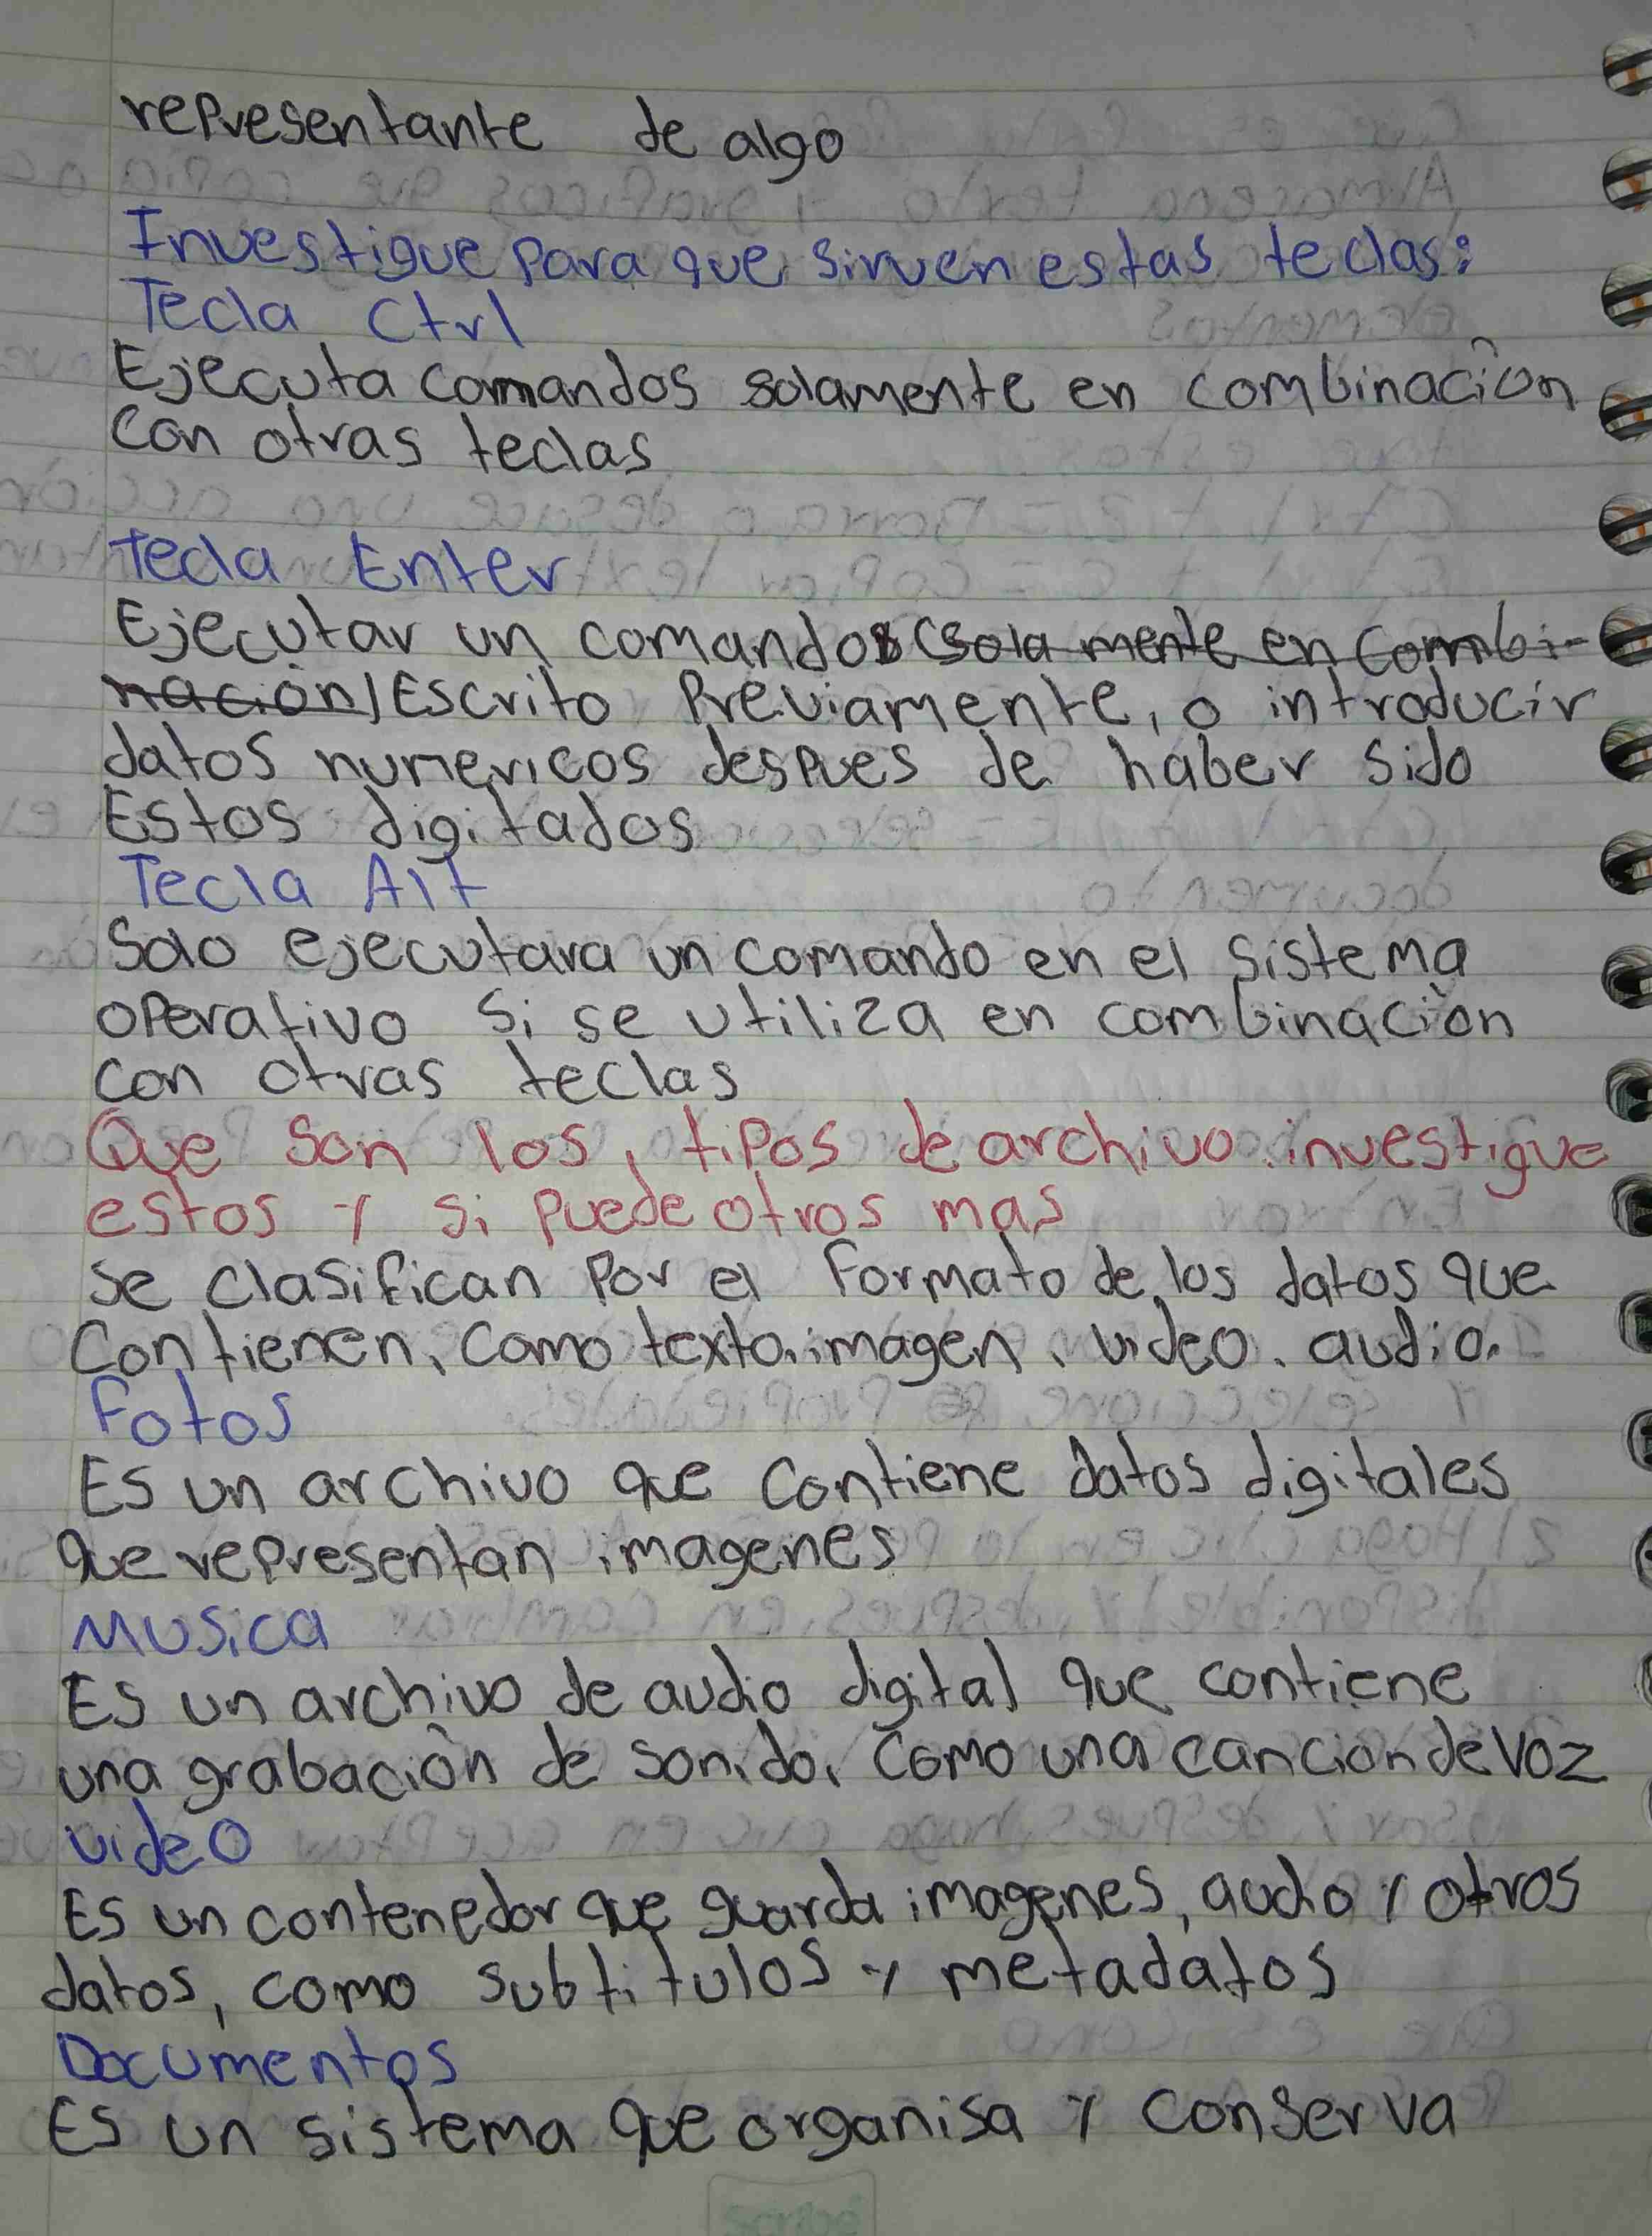 representante de algo
Investigue para que sirven estas teclas:
Tecla Ctrl
Ejecuta comandos solamente en combinación
con otras teclas
Tecla Enter
Ejecutar un comandos (sola mente en combi-
nación) Escrito Previamente, o introducir
datos numericos despues de haber sido
Estos digitados
Tecla Alt
Solo ejecutara un comando en el sistema
operativo si se utiliza en combinación
con otras teclas
Que son los, tipos de archivo investigue
estos y si puede otros mas
se clasifican por el formato de los datos que
Contienen, como texto, imagen, video, audio.
Fotos
Es un archivo que contiene datos digitales
que representan imagenes
Musica
Es un archivo de audio digital que contiene
una grabación de sonido, como una cancion de voz
video
Es un contenedor que guarda imagenes, audio y otros
datos, como subtitulos y metadatos
Documentos
Es un sistema que organisa y conserva
Scribe